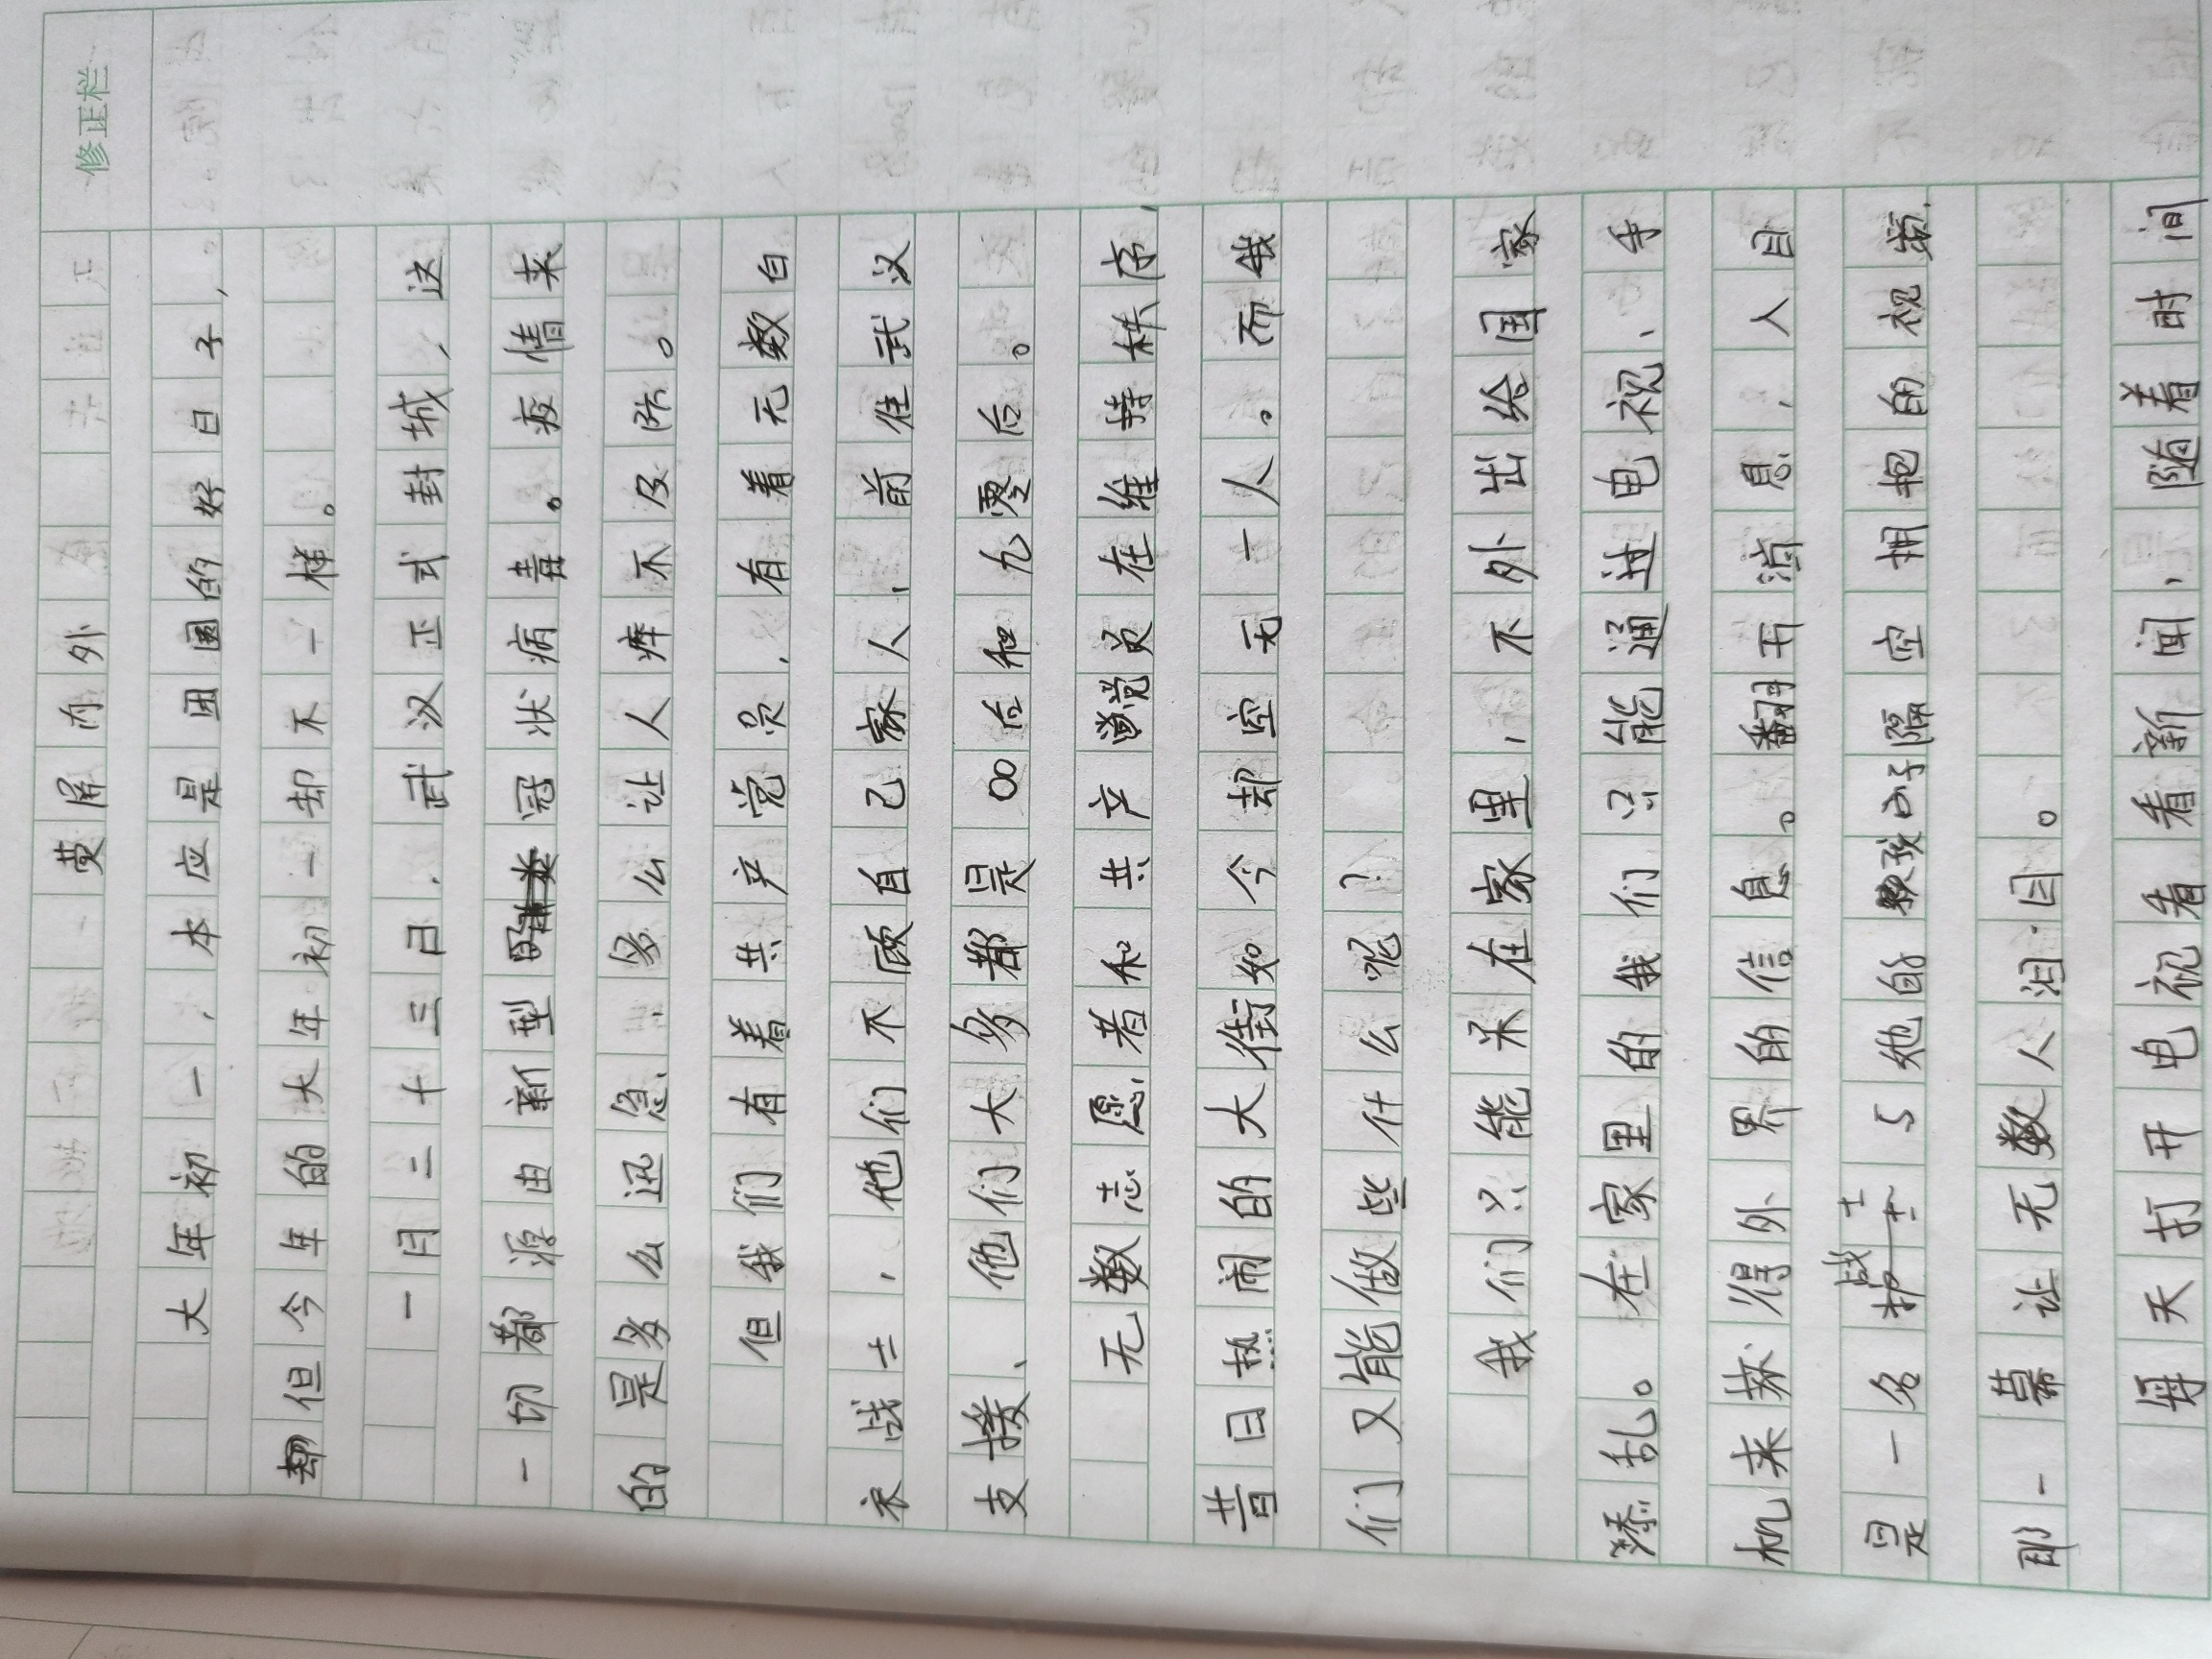 修正栏
荧屏内外
大年初一，本应是团圆的好日子，
但今年的大年初一却不一样。
一月二十三日，武汉正式封城，这
一切都源由新型冠状病毒。疫情来
的是多么迅急，多么让人猝不及防。
但我们有着共产党员，有着无数白
衣战士，他们不顾自己家人，前往武汉
支援、他们大多都是00后和九零后。
无数志愿者和共产党员在维持秩序，
昔日热闹的大街如今却空无一人。而我
们又能做些什么呢？
我们只能呆在家里，不外出给国家
添乱。在家里的我们只能通过电视、手
机来获得外界的信息。翻开消息，入目
是一名战士与她的孩子隔空拥抱的视频，
那一幕让无数人泪目。
每天打开电视看看新闻，随着时间